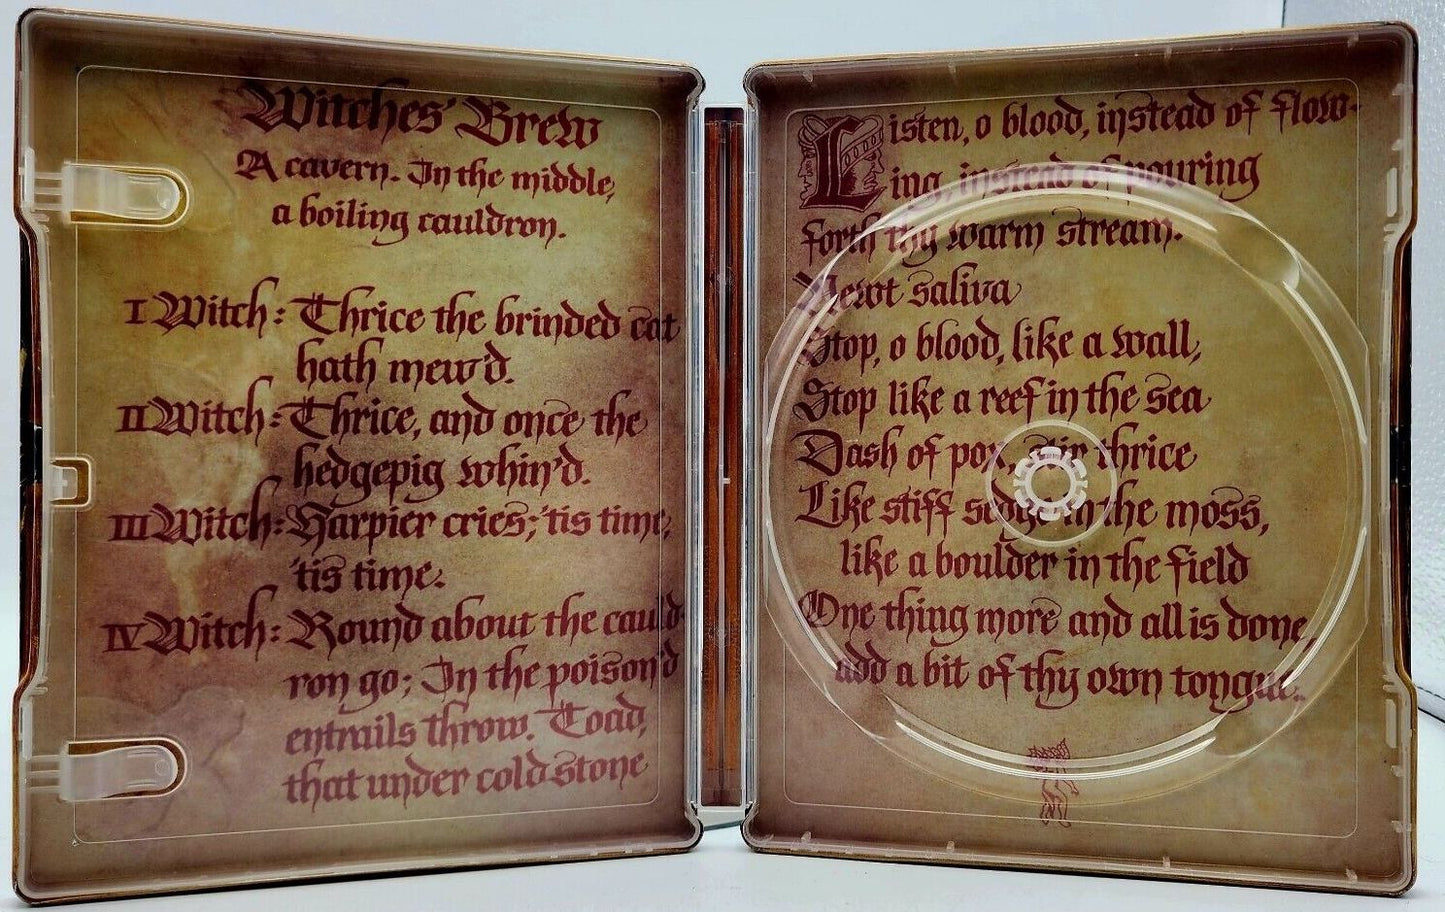 Witches' Brew
A cavern. In the middle,
a boiling cauldron.
I Witch: Thrice the brinded cat
hath mew'd.
II Witch: Thrice, and once the
hedgepig whin'd.
III Witch: Harpier cries; 'tis time,
'tis time.
IV Witch: Round about the cauld-
ron go; In the poison'd
entrails throw. Toad,
that under cold stone
Listen, o blood, instead of flow-
ing, instead of pouring
forth thy warm stream.
Newt saliva
Stop, o blood, like a wall,
Stop like a reef in the sea
Dash of pox, stir thrice
Like stiff sedge in the moss,
like a boulder in the field
One thing more and all is done,
add a bit of thy own tongue.